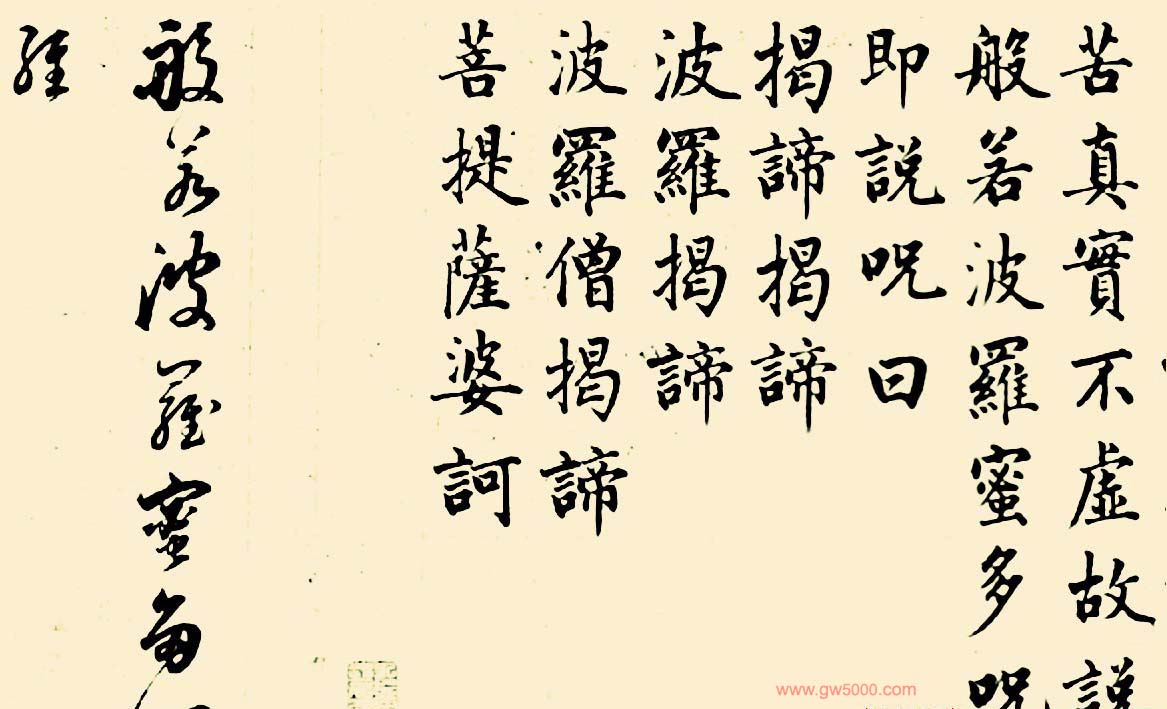 苦真實不虛故説
般若波羅蜜多呪
即説呪曰
揭諦揭諦
波羅揭諦
波羅僧揭諦
菩提薩婆訶
般若波羅蜜多
經
www.gw5000.com